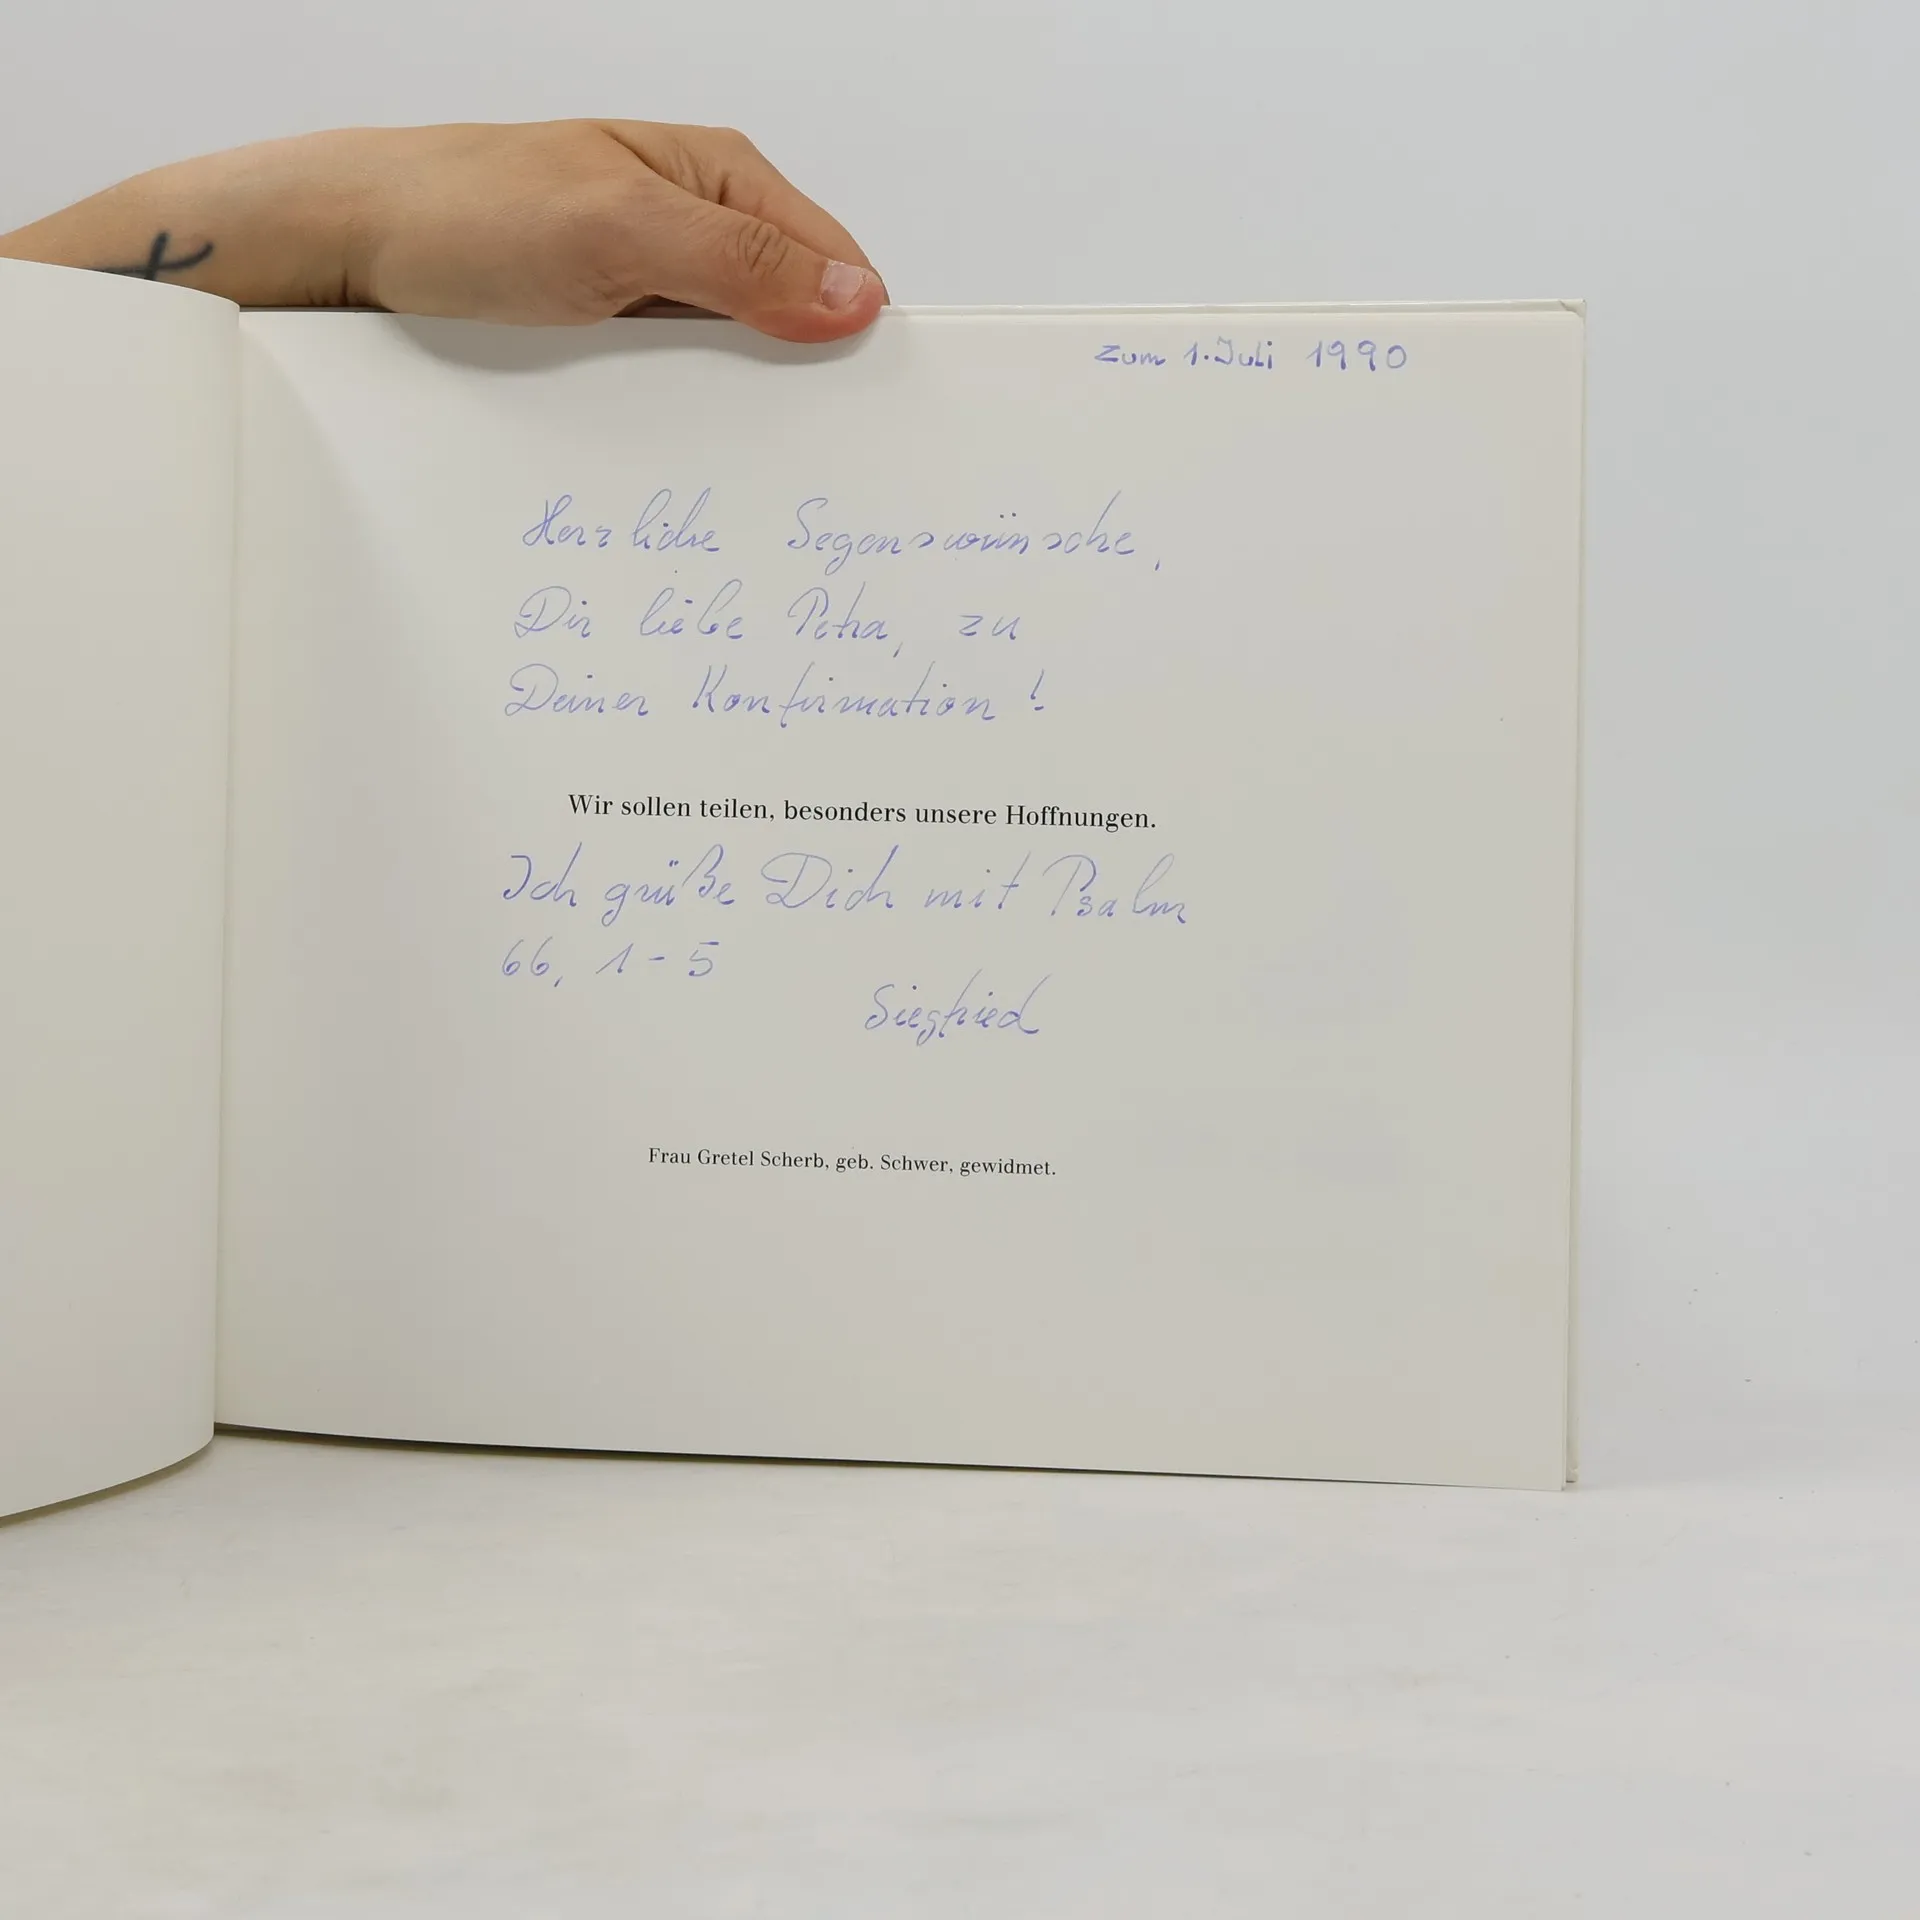 Zum 1. Juli 1990
Herzliche Segenswünsche,
Dir liebe Petra, zu
Deiner Konfirmation!
Wir sollen teilen, besonders unsere Hoffnungen.
Ich grüße Dich mit Psalm
66, 1-5
Siegfried
Frau Gretel Scherb, geb. Schwer, gewidmet.